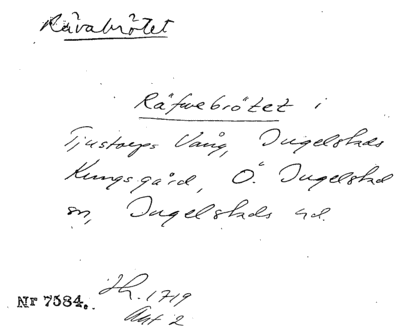 Råvabrötet
Räfwebrötet i
Tjustorps Vång, Ingelstads
Kungsgård, Ö. Ingelstad
sn, Ingelstads hd.
Nr 7584.
Jh. 1719
Akt 2